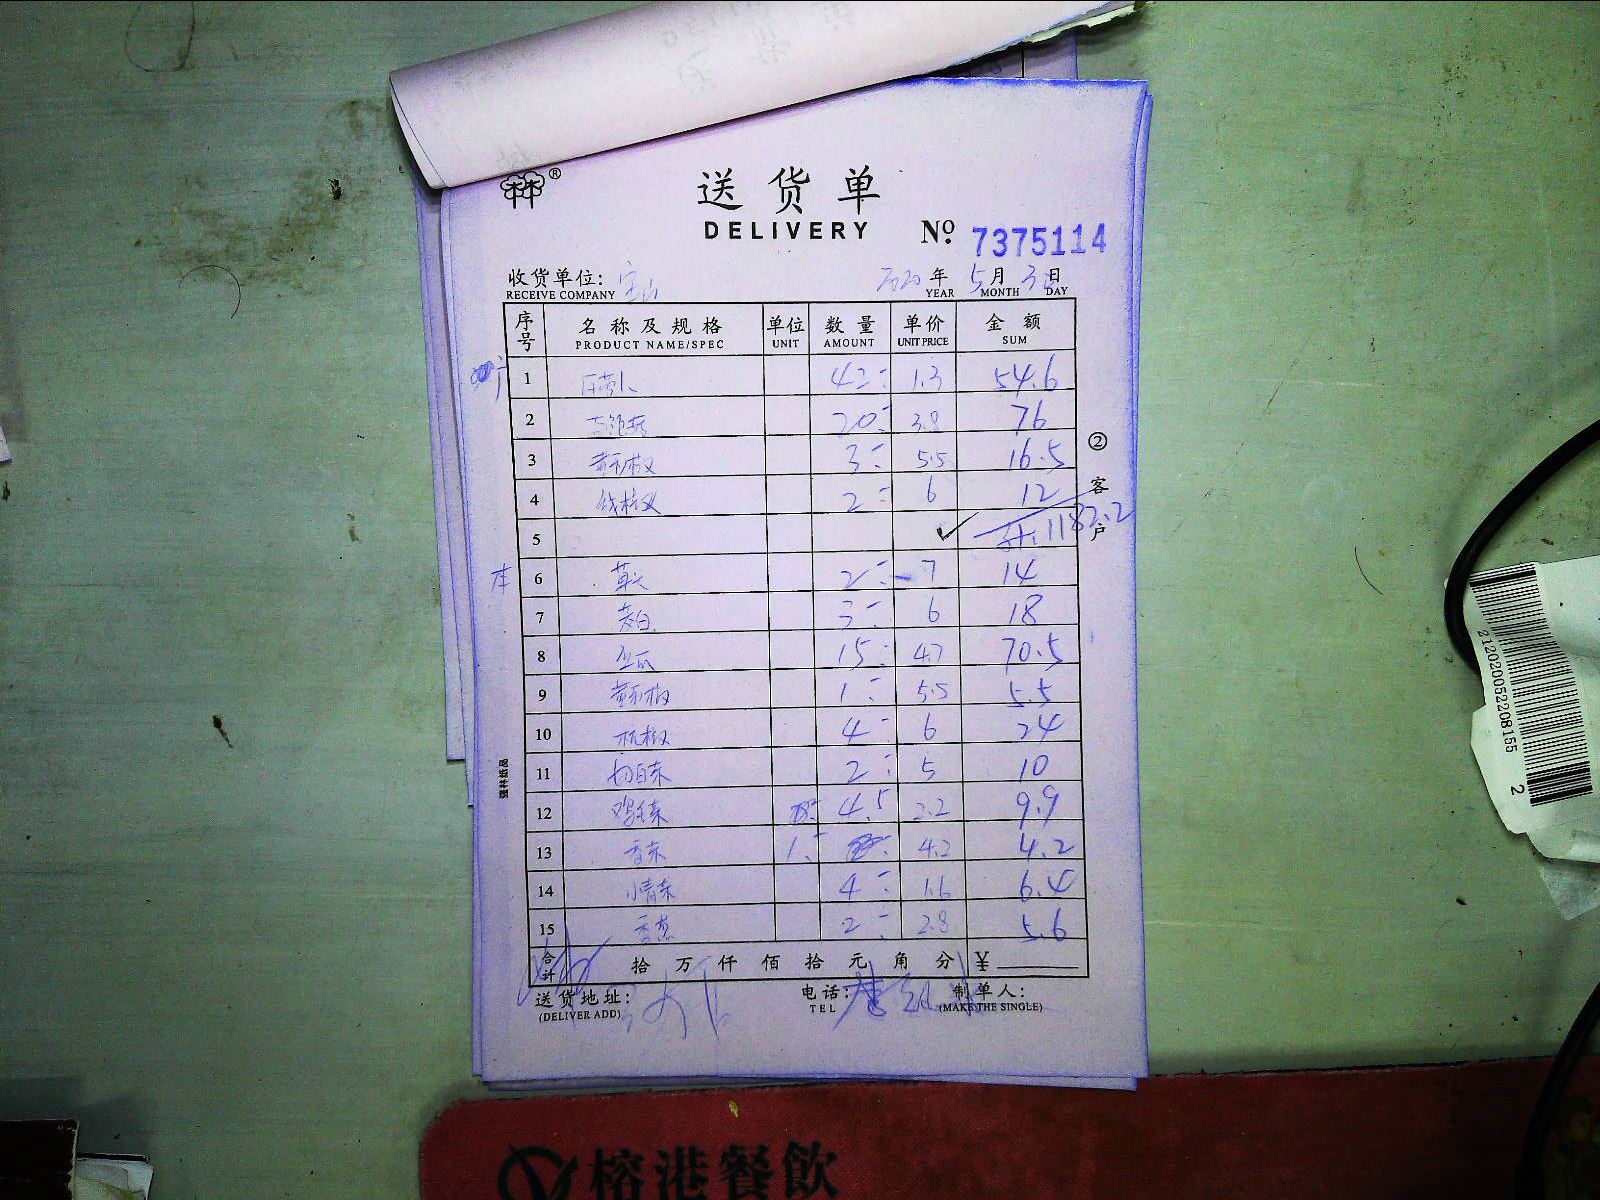 送货单
DELIVERY
No. 7375114
收货单位: 宝山 2020 年 5 月 3 日
RECEIVE COMPANY YEAR MONTH DAY
序号 名称及规格 单位 数量 单价 金额
PRODUCT NAME/SPEC UNIT AMOUNT UNIT PRICE SUM
1 42 1.3 54.6
2 20 3.8 76
3 3 5.5 16.5
4 线椒 2 6 12
5 1182.2
6 草头 2 7 14
7 茭白 3 6 18
8 15 4.7 70.5
9 1 5.5 5.5
10 杭椒 4 6 24
11 2 5 10
12 鸡毛菜 4.5 2.2 9.9
13 香菜 1 4.2 4.2
14 小青菜 4 1.6 6.4
15 香葱 2 2.8 5.6
合计 拾 万 仟 佰 拾 元 角 分 ¥
送货地址: 电话: 制单人:
(DELIVER ADD) TEL (MAKE THE SINGLE)
② 客户
强林纸品
212020052208155 2
榕港餐飲